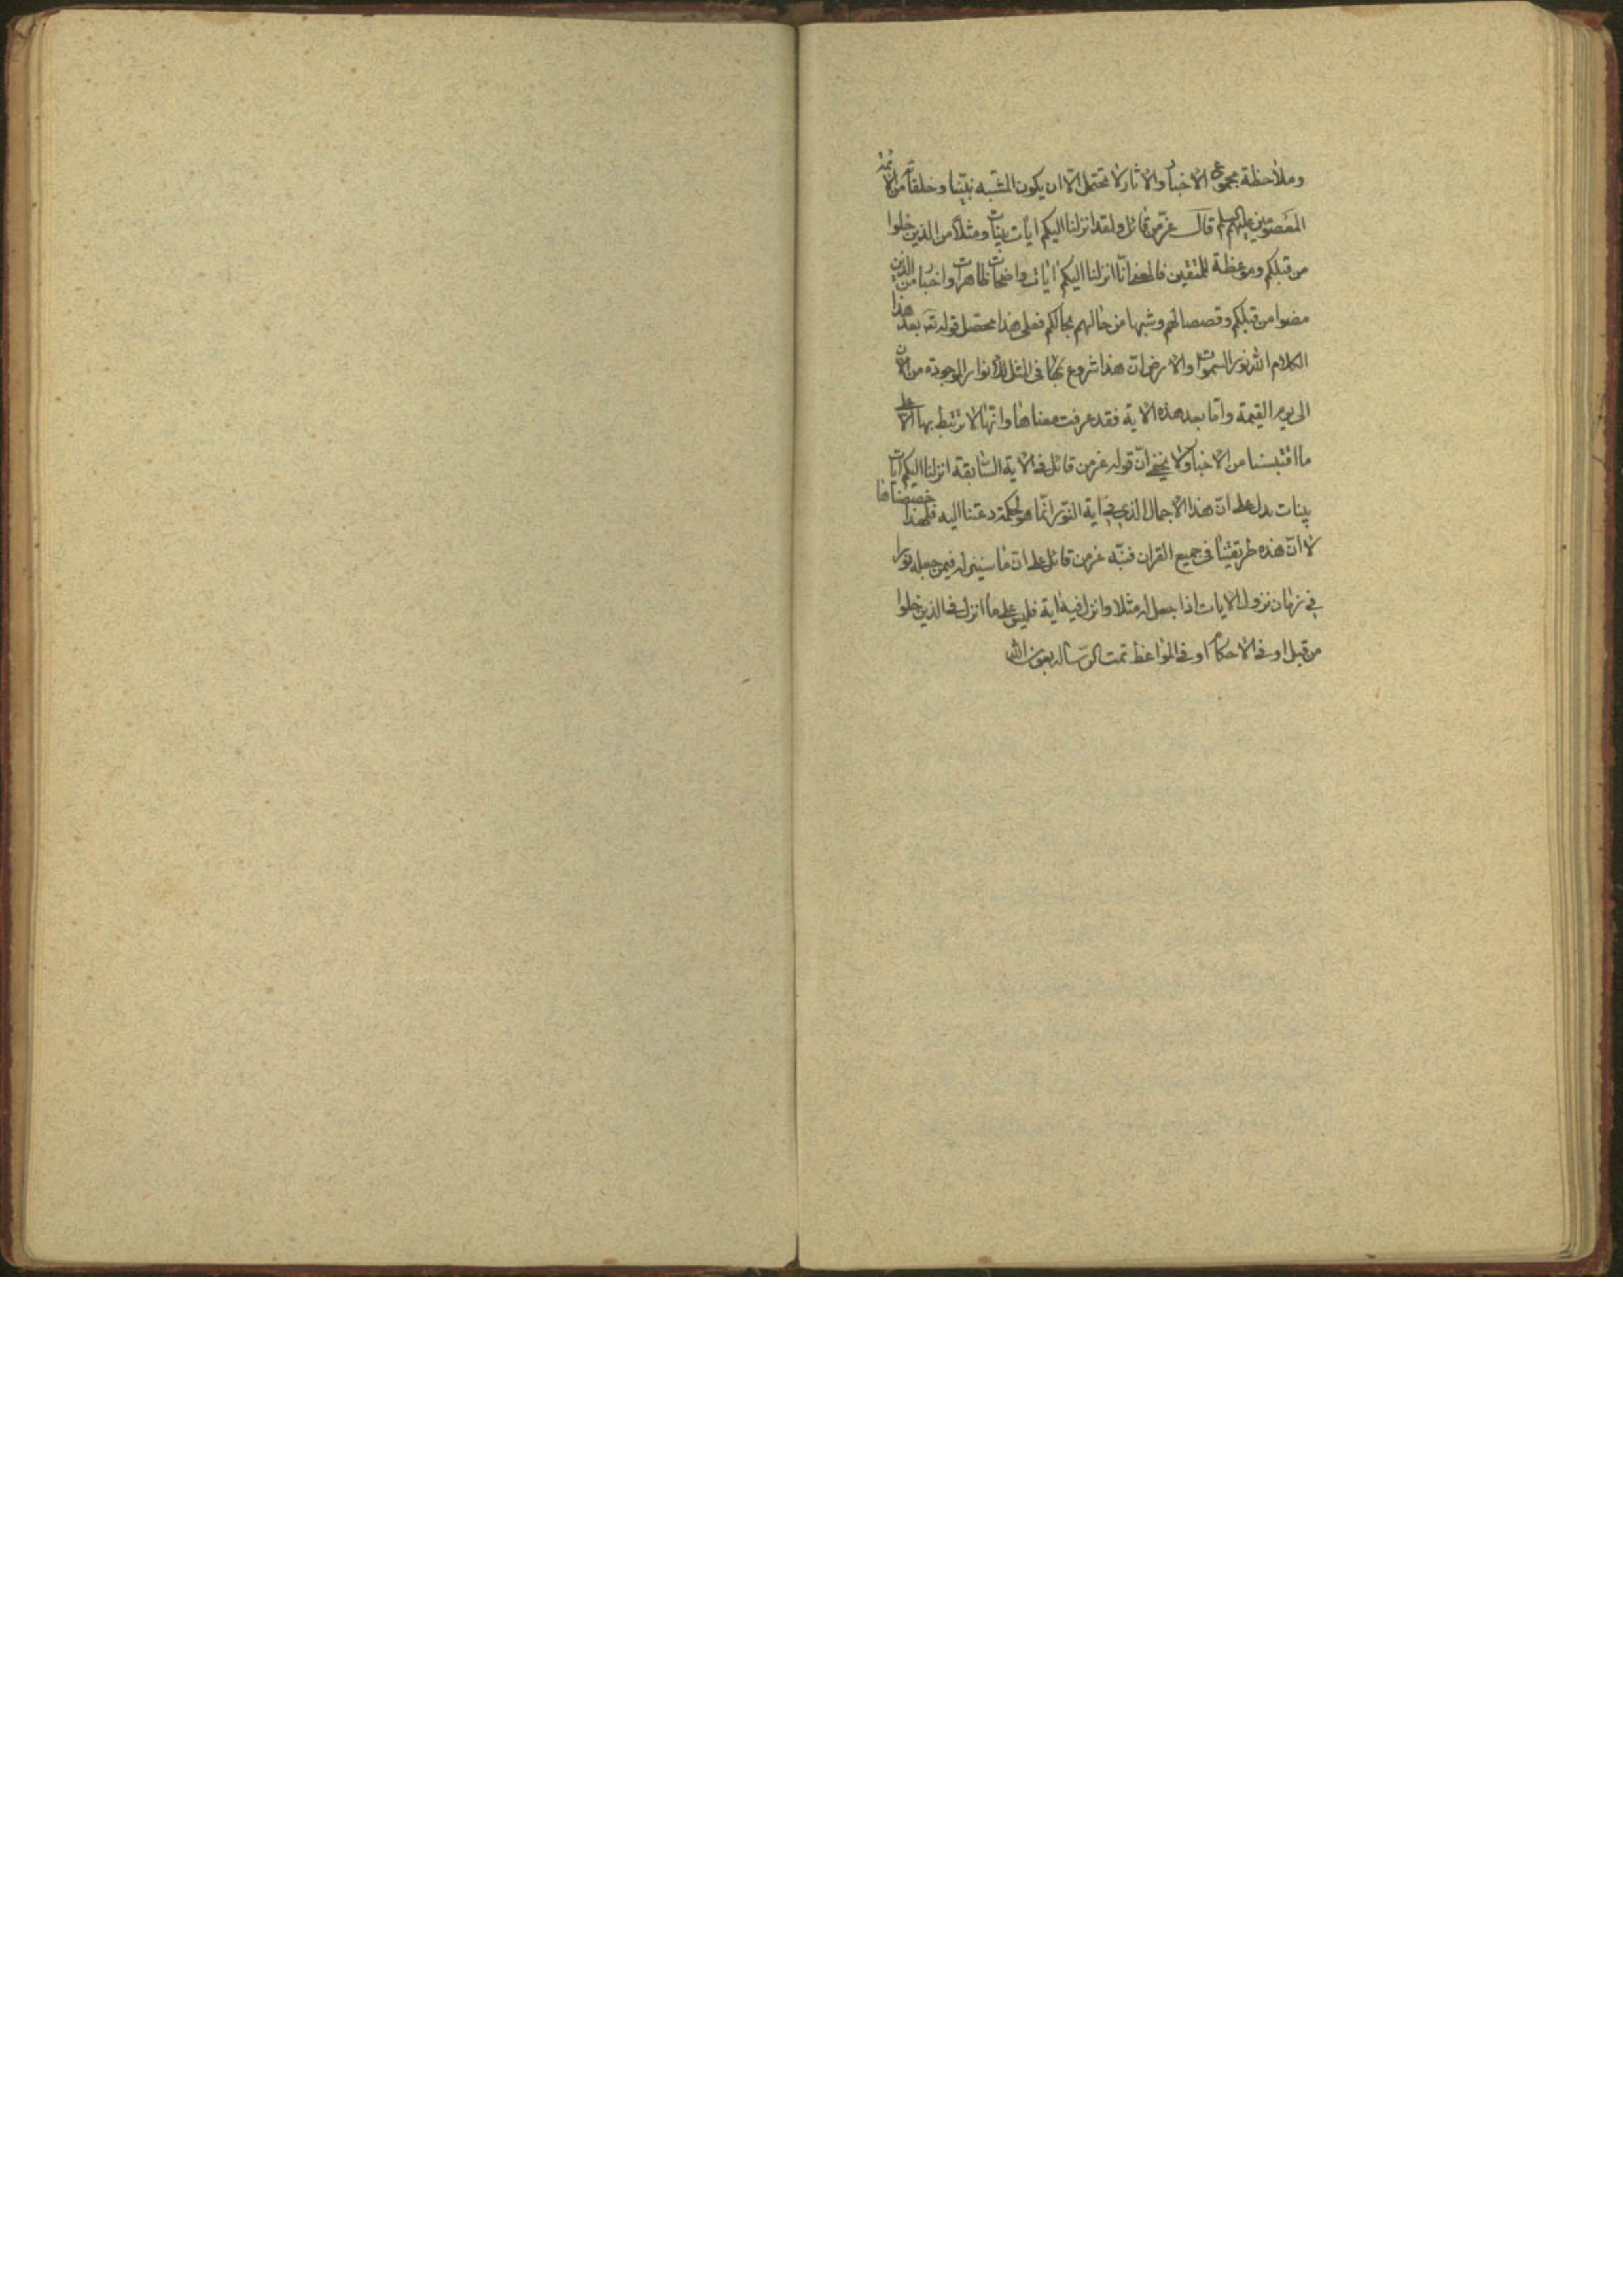 وملاحظة مجموع الاخبار والاثار لا تحتمل الّا ان يكون المشبّه نبيّنا وخلفائه من الائمّة
المعصومين عليهم السلم قال عزّ من قائل ولقد انزلنا اليكم ايات بينات ومثلا من الذين خلوا
من قبلكم وموعظة للمتقين فالمعنى انّا انزلنا اليكم ايات واضحات ظاهرات واخبار من الذين
مضوا من قبلكم وقصصا لهم وشبها من حالهم بحالكم فعلى هذا محصّل قوله تعـ بعد هذا
الكلام الله نور السموات والارض انّ هذا شروع بها فى المثل للانوار الموجودة من الان
الى يوم القيمة وامّا بعد هذه الاية فقد عرفت معناها وانّها لا ترتبط بها الّا على
ما اقتبسنا من الاخبار ولا يخفى انّ قوله عزّ من قائل فى الاية السّابقة انزلنا اليكم ايات
بينات يدل على انّ هذا الاجمال الذى فى اية النّور انّما هو لحكمة دعتنا اليه فلهذا خصّصناها
لا انّ هذه طريقتنا فى جميع القران فنبّه عزّ من قائل على انّ ما سينزله فيمن جعله نورا
فى زمان نزول الايات اذا جعل له مثلا وانزل فيه اية فليس على ما انزل فى الذين خلوا
من قبل او فى الاحكام او فى المواعظ تمت الرّسالة بعون الله